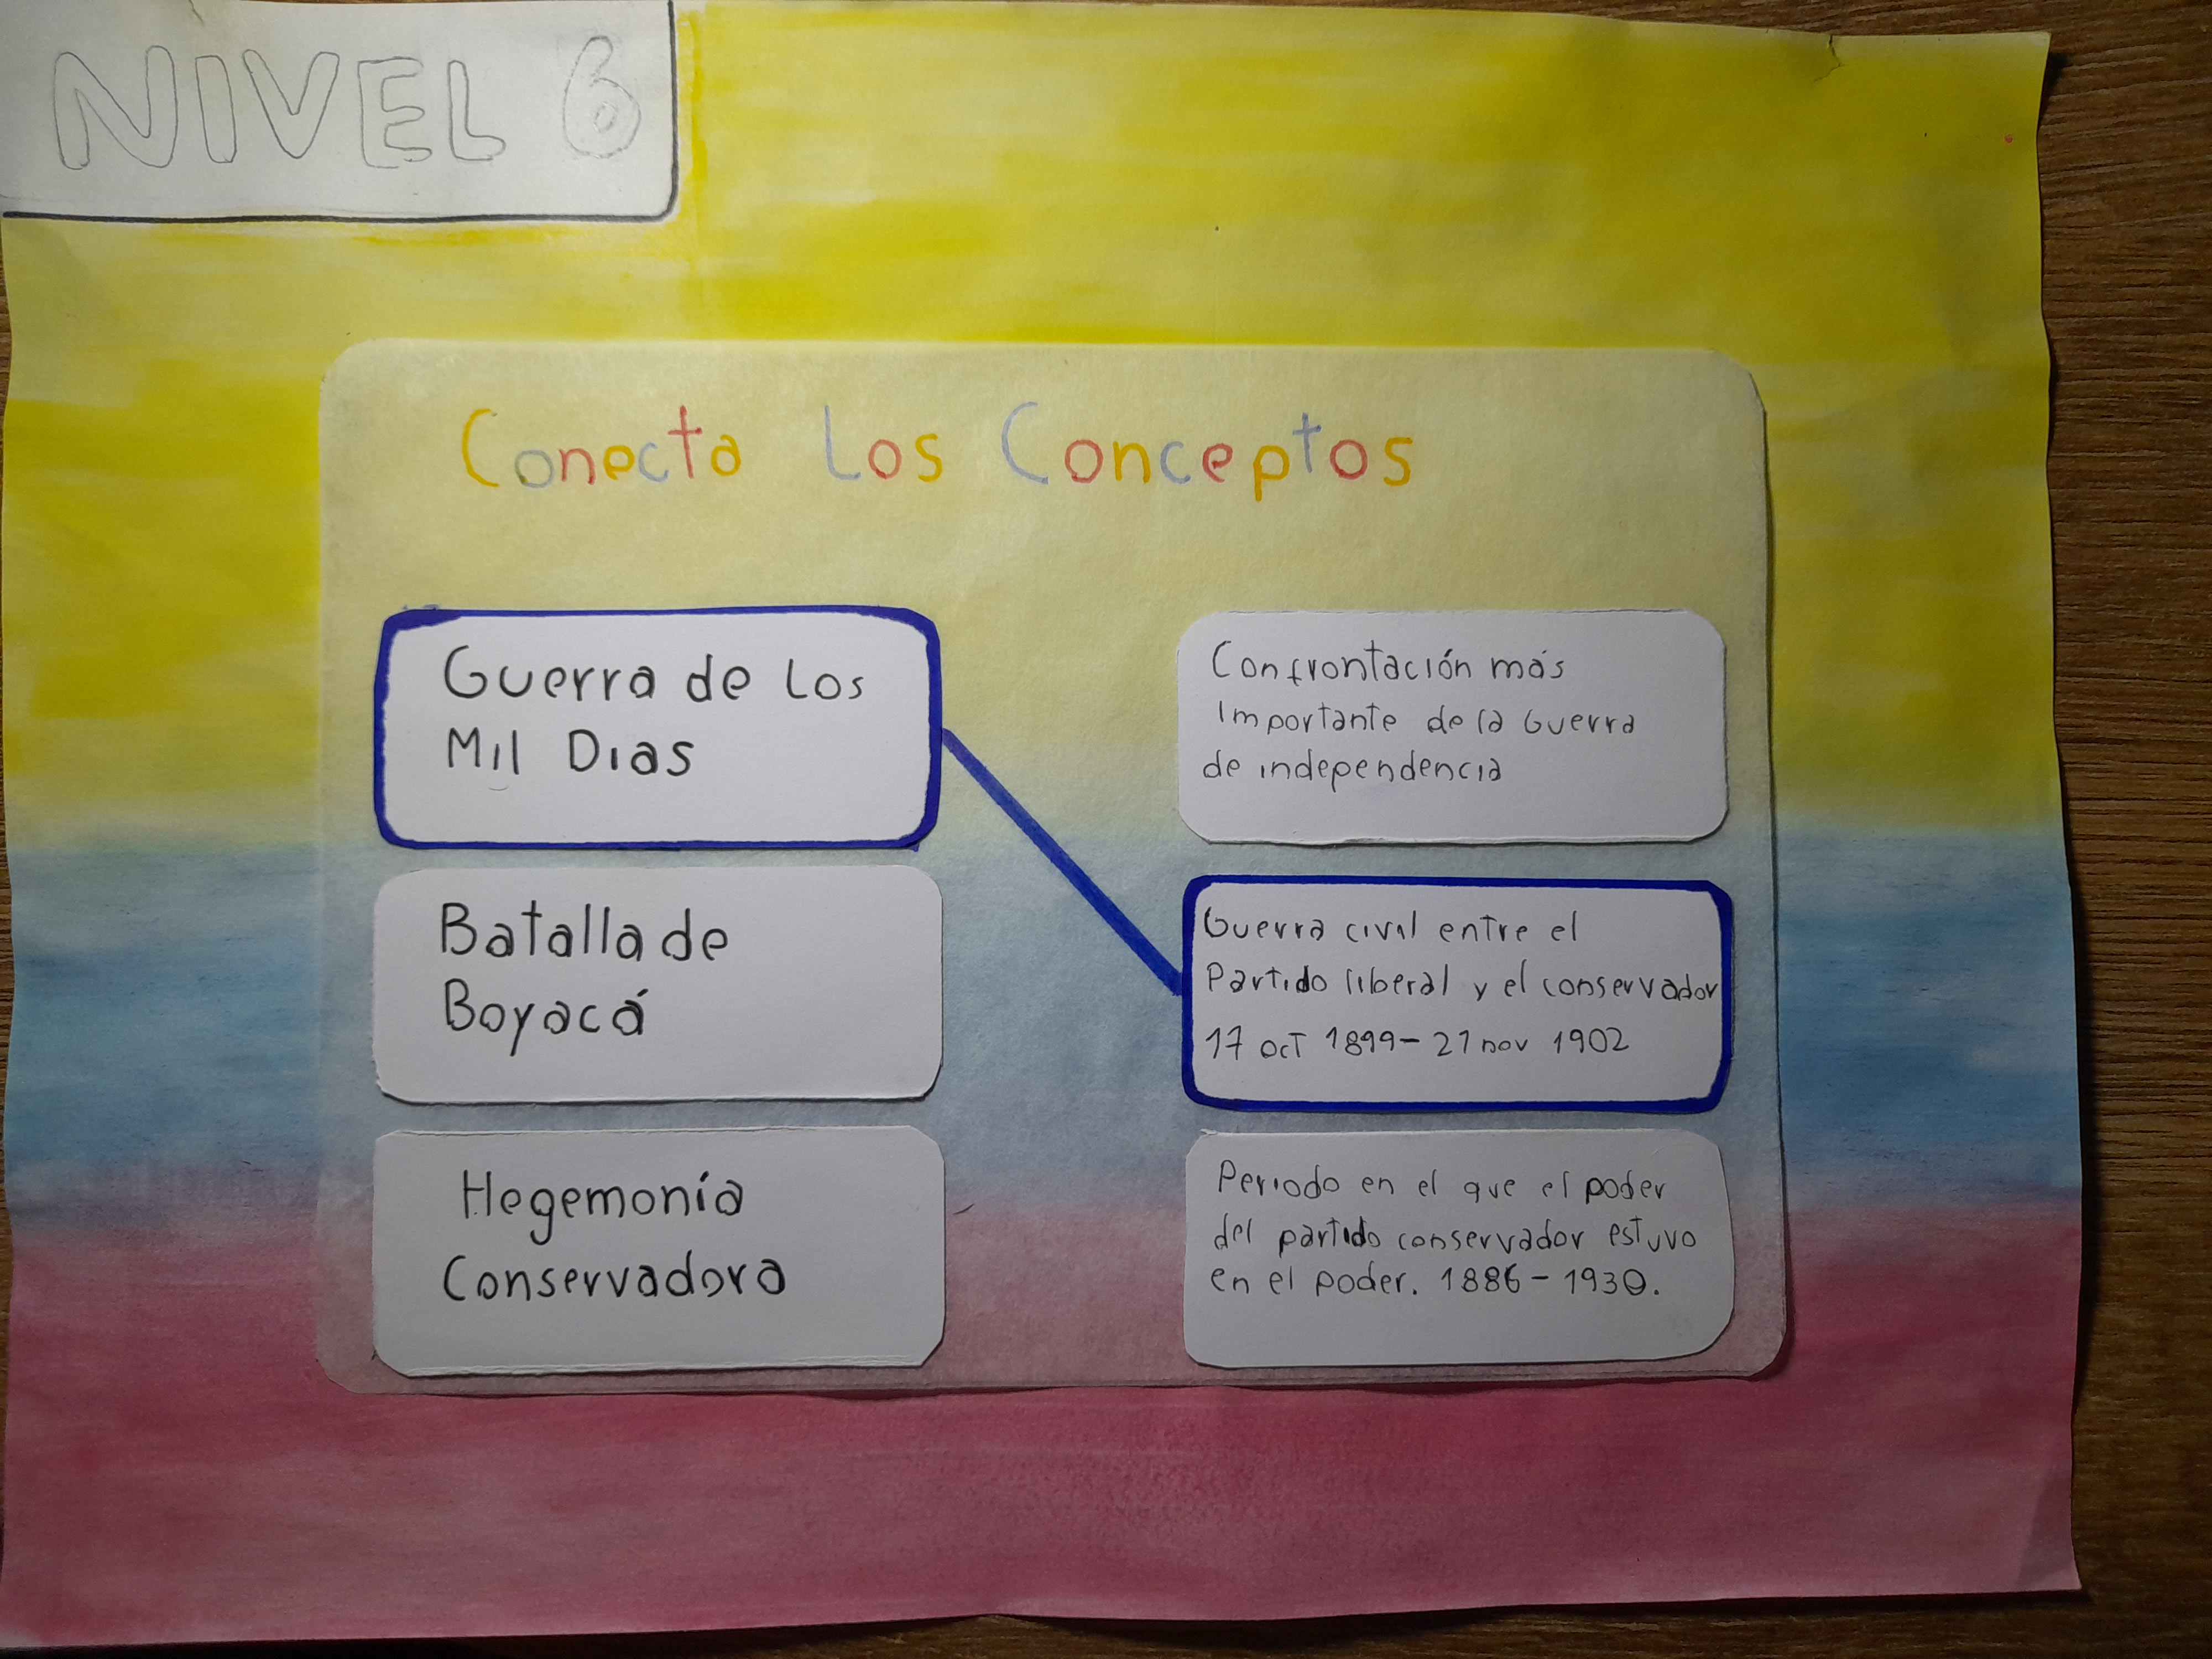 NIVEL 6
Conecta Los Conceptos
Guerra de Los
Mil Dias
Batalla de
Boyacá
Hegemonía
Conservadora
Confrontación más
importante de la Guerra
de independencia
Guerra civil entre el
Partido liberal y el conservador
17 oct 1899 - 21 nov 1902
Periodo en el que el poder
del partido conservador estuvo
en el poder. 1886 - 1930.